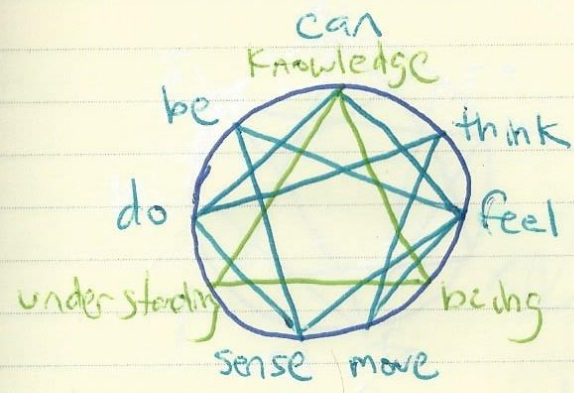 can
Knowledge
be
think
do
feel
understanding
being
sense move